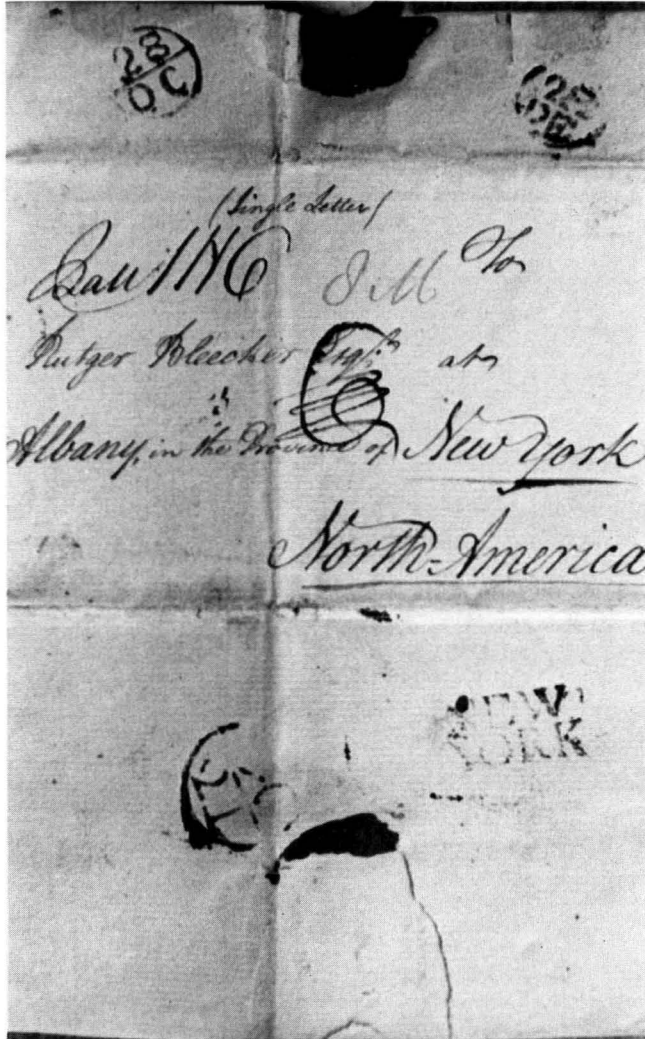 28
OC
(Single Letter)
To
Rutger Bleecker Esqr. at
Albany, in the Province of New York
North-America
NEW
YORK